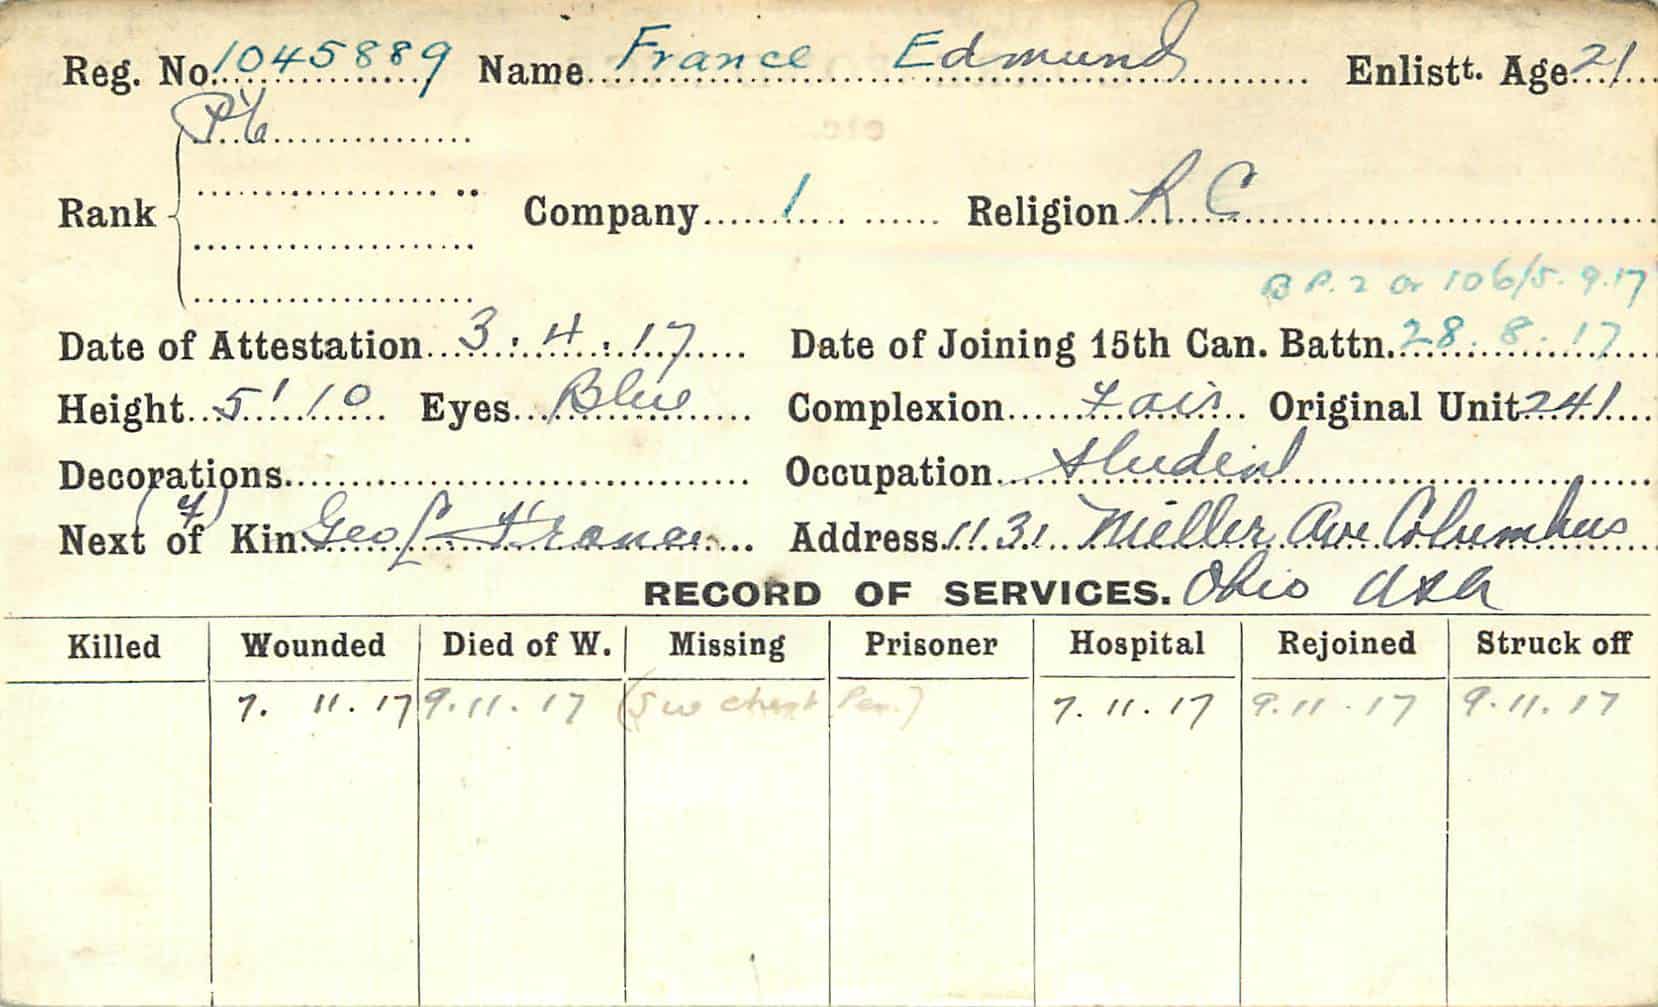 Reg. No. 1045889 Name France Edmund Enlistt. Age 21
Pte
Rank Company 1 Religion R C
B P. 2 Or 106/5.9.17
Date of Attestation 3.4.17 Date of Joining 15th Can. Battn. 28.8.17
Height 5'10 Eyes Blue Complexion Fair Original Unit 241
Decorations Occupation Student
(F)
Next of Kin Geo L France Address 1131 Miller Ave Columbus
RECORD OF SERVICES. Ohio USA
Killed Wounded Died of W. Missing Prisoner Hospital Rejoined Struck off
7. 11. 17 9.11.17 (S W chest Pen.) 7.11.17 9.11.17 9.11.17